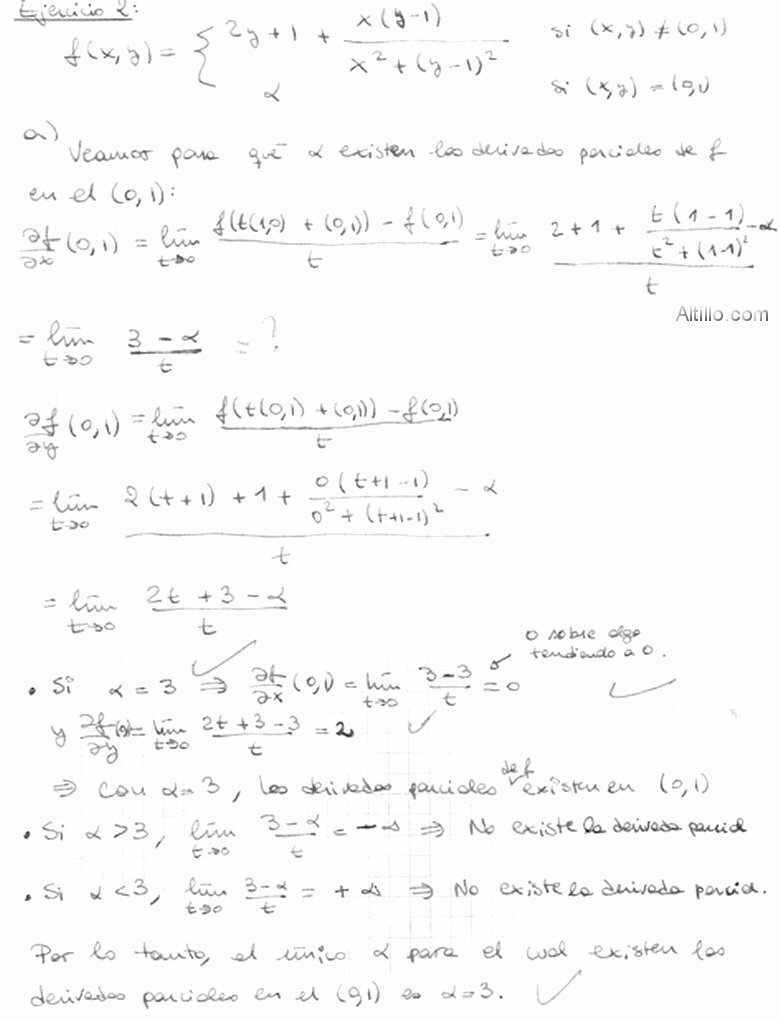 Ejercicio 2:
f(x,y) = { 2y+1 + x(y-1) / x² + (y-1)² si (x,y) ≠ (0,1)
α si (x,y) = (0,1)
a)
Veamos para qué α existen las derivadas parciales de f
en el (0,1):
∂f/∂x (0,1) = lím t→0 f(t(1,0) + (0,1)) - f(0,1) / t = lím t→0 2+1 + t(1-1) / t² + (1-1)² - α / t
Altillo.com
= lím t→0 3 - α / t = ?
∂f/∂y (0,1) = lím t→0 f(t(0,1) + (0,1)) - f(0,1) / t
= lím t→0 2(t+1) + 1 + 0(t+1-1) / 0² + (t+1-1)² - α / t
= lím t→0 2t + 3 - α / t
0 sobre algo
tendiendo a 0.
• Si α = 3 ⇒ ∂f/∂x (0,1) = lím t→0 3-3 / t = 0
y ∂f/∂y = lím t→0 2t+3-3 / t = 2
⇒ Con α=3, las derivadas parciales de f existen en (0,1)
• Si α > 3, lím t→0 3-α / t = -∞ ⇒ No existe la derivada parcial
• Si α < 3, lím t→0 3-α / t = +∞ ⇒ No existe la derivada parcial.
Por lo tanto, el único α para el cual existen las
derivadas parciales en el (0,1) es α=3.